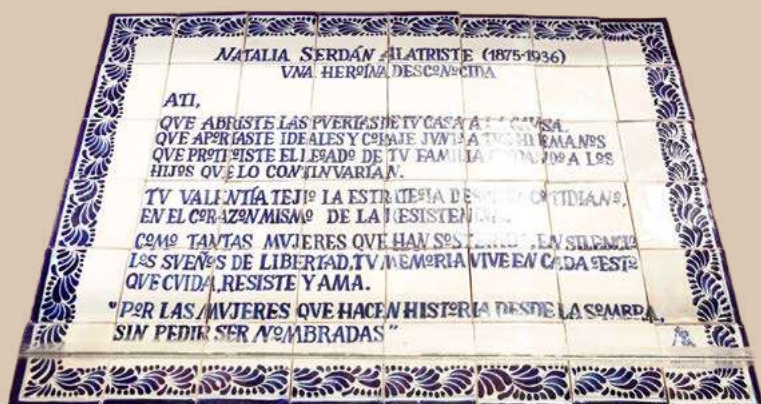 NATALIA SERDÁN ALATRISTE (1875-1936)
VNA HEROÍNA DESCONOCIDA
A TI,
QUE ABRISTE LAS PVERTAS DE TV CASA A LA CAVSA.
QVE APORTASTE IDEALES Y CORAJE JVNTO A TVS HERMANOS
QVE PROTEGISTE EL LEGADO DE TV FAMILIA CVIDANDO A LOS
HIJOS QVE LO CONTINVARÍAN.
TV VALENTÍA TEJIO LA ESTRATEGIA DESDE LO COTIDIANO,
EN EL CORAZON MISMO DE LA RESISTENCIA.
COMO TANTAS MVJERES QVE HAN SOSTENIDO, EN SILENCIO
LOS SVEÑOS DE LIBERTAD, TV MEMORIA VIVE EN CADA GESTO
QVE CVIDA, RESISTE Y AMA.
"POR LAS MVJERES QVE HACEN HISTORIA DESDE LA SOMBRA,
SIN PEDIR SER NOMBRADAS"